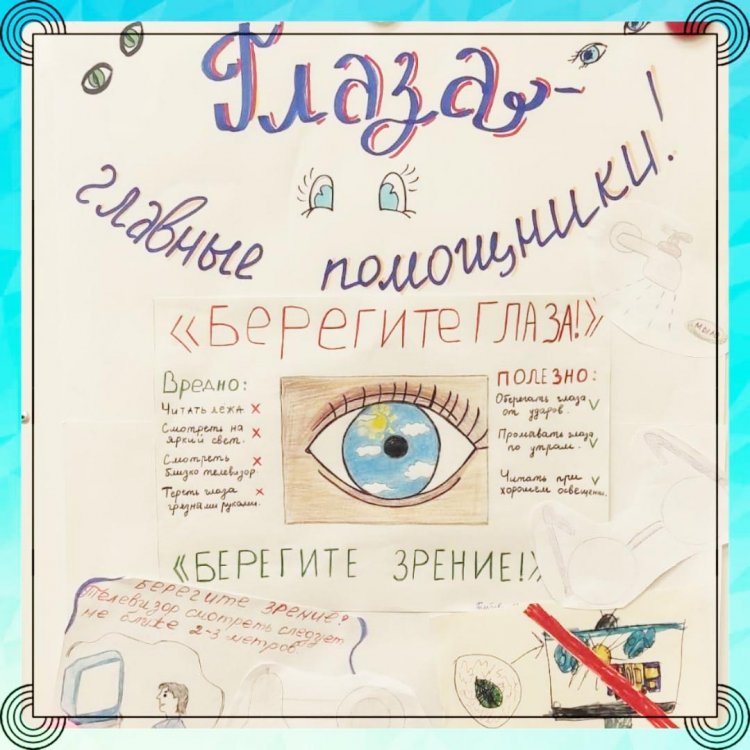 Глаза-
главные помощники!
«БЕРЕГИТЕ ГЛАЗА!»
Вредно:
Читать лежа ×
Смотреть на
яркий свет. ×
Смотреть ×
близко телевизор.
Тереть глаза ×
грязными руками.
ПОЛЕЗНО:
Оберегать глаза
от ударов. ✓
Промывать глаза
по утрам. ✓
Читать при ✓
хорошем освещении.
«БЕРЕГИТЕ ЗРЕНИЕ!»
Берегите зрение!
Телевизор смотреть следует
не ближе 2-3 метров